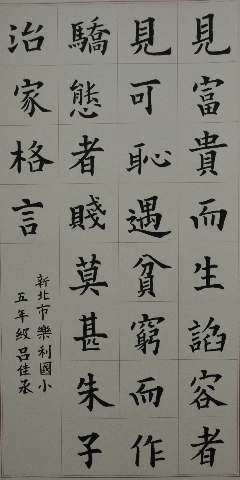 見富貴而生諂容者
見可恥遇貧窮而作
驕態者賤莫甚朱子
治家格言
新北市樂利國小
五年級呂佳丞